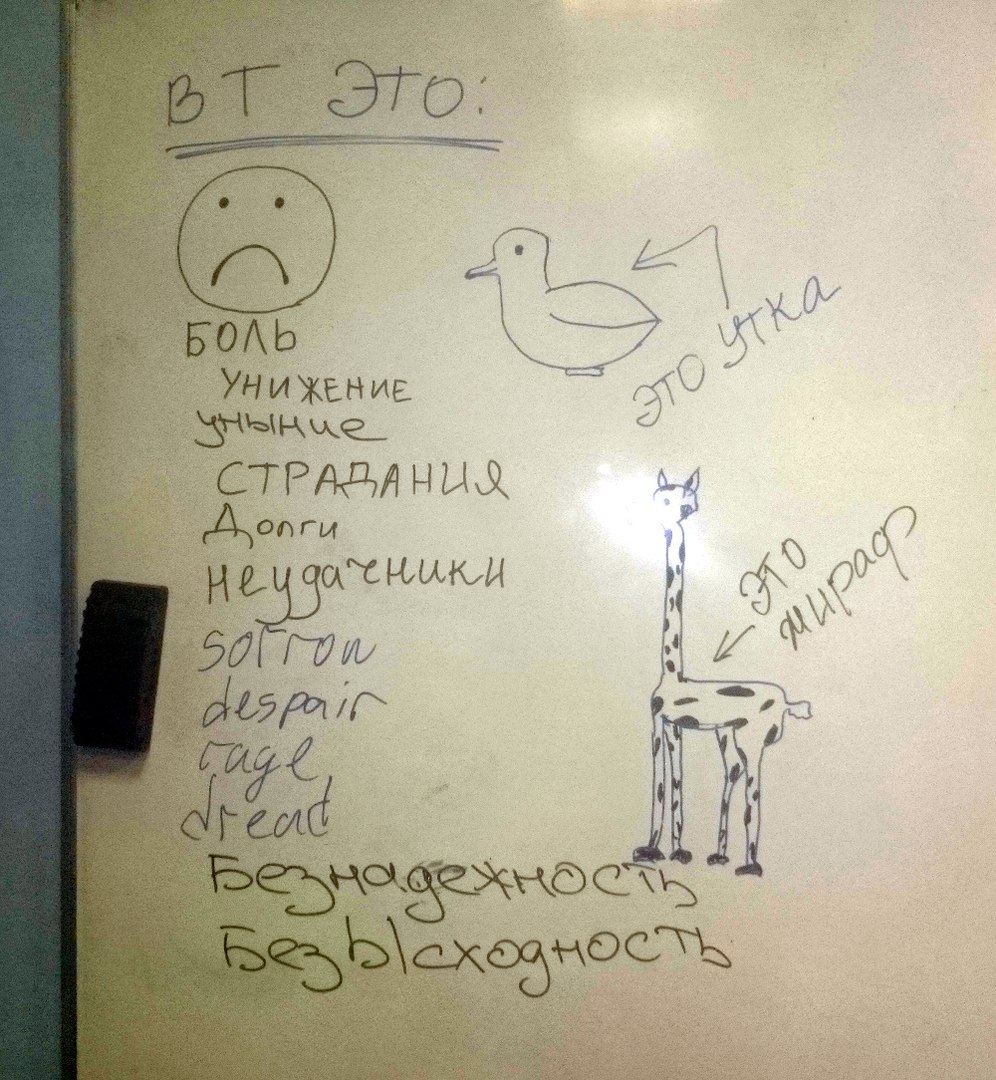 ВТ ЭТО:
БОЛЬ
УНИЖЕНИЕ
уныние
СТРАДАНИЯ
Долги
неудачники
sorrow
despair
rage
dread
Безнадежность
БезЫсходность
ЭТО УТКА
ЭТО
жираф